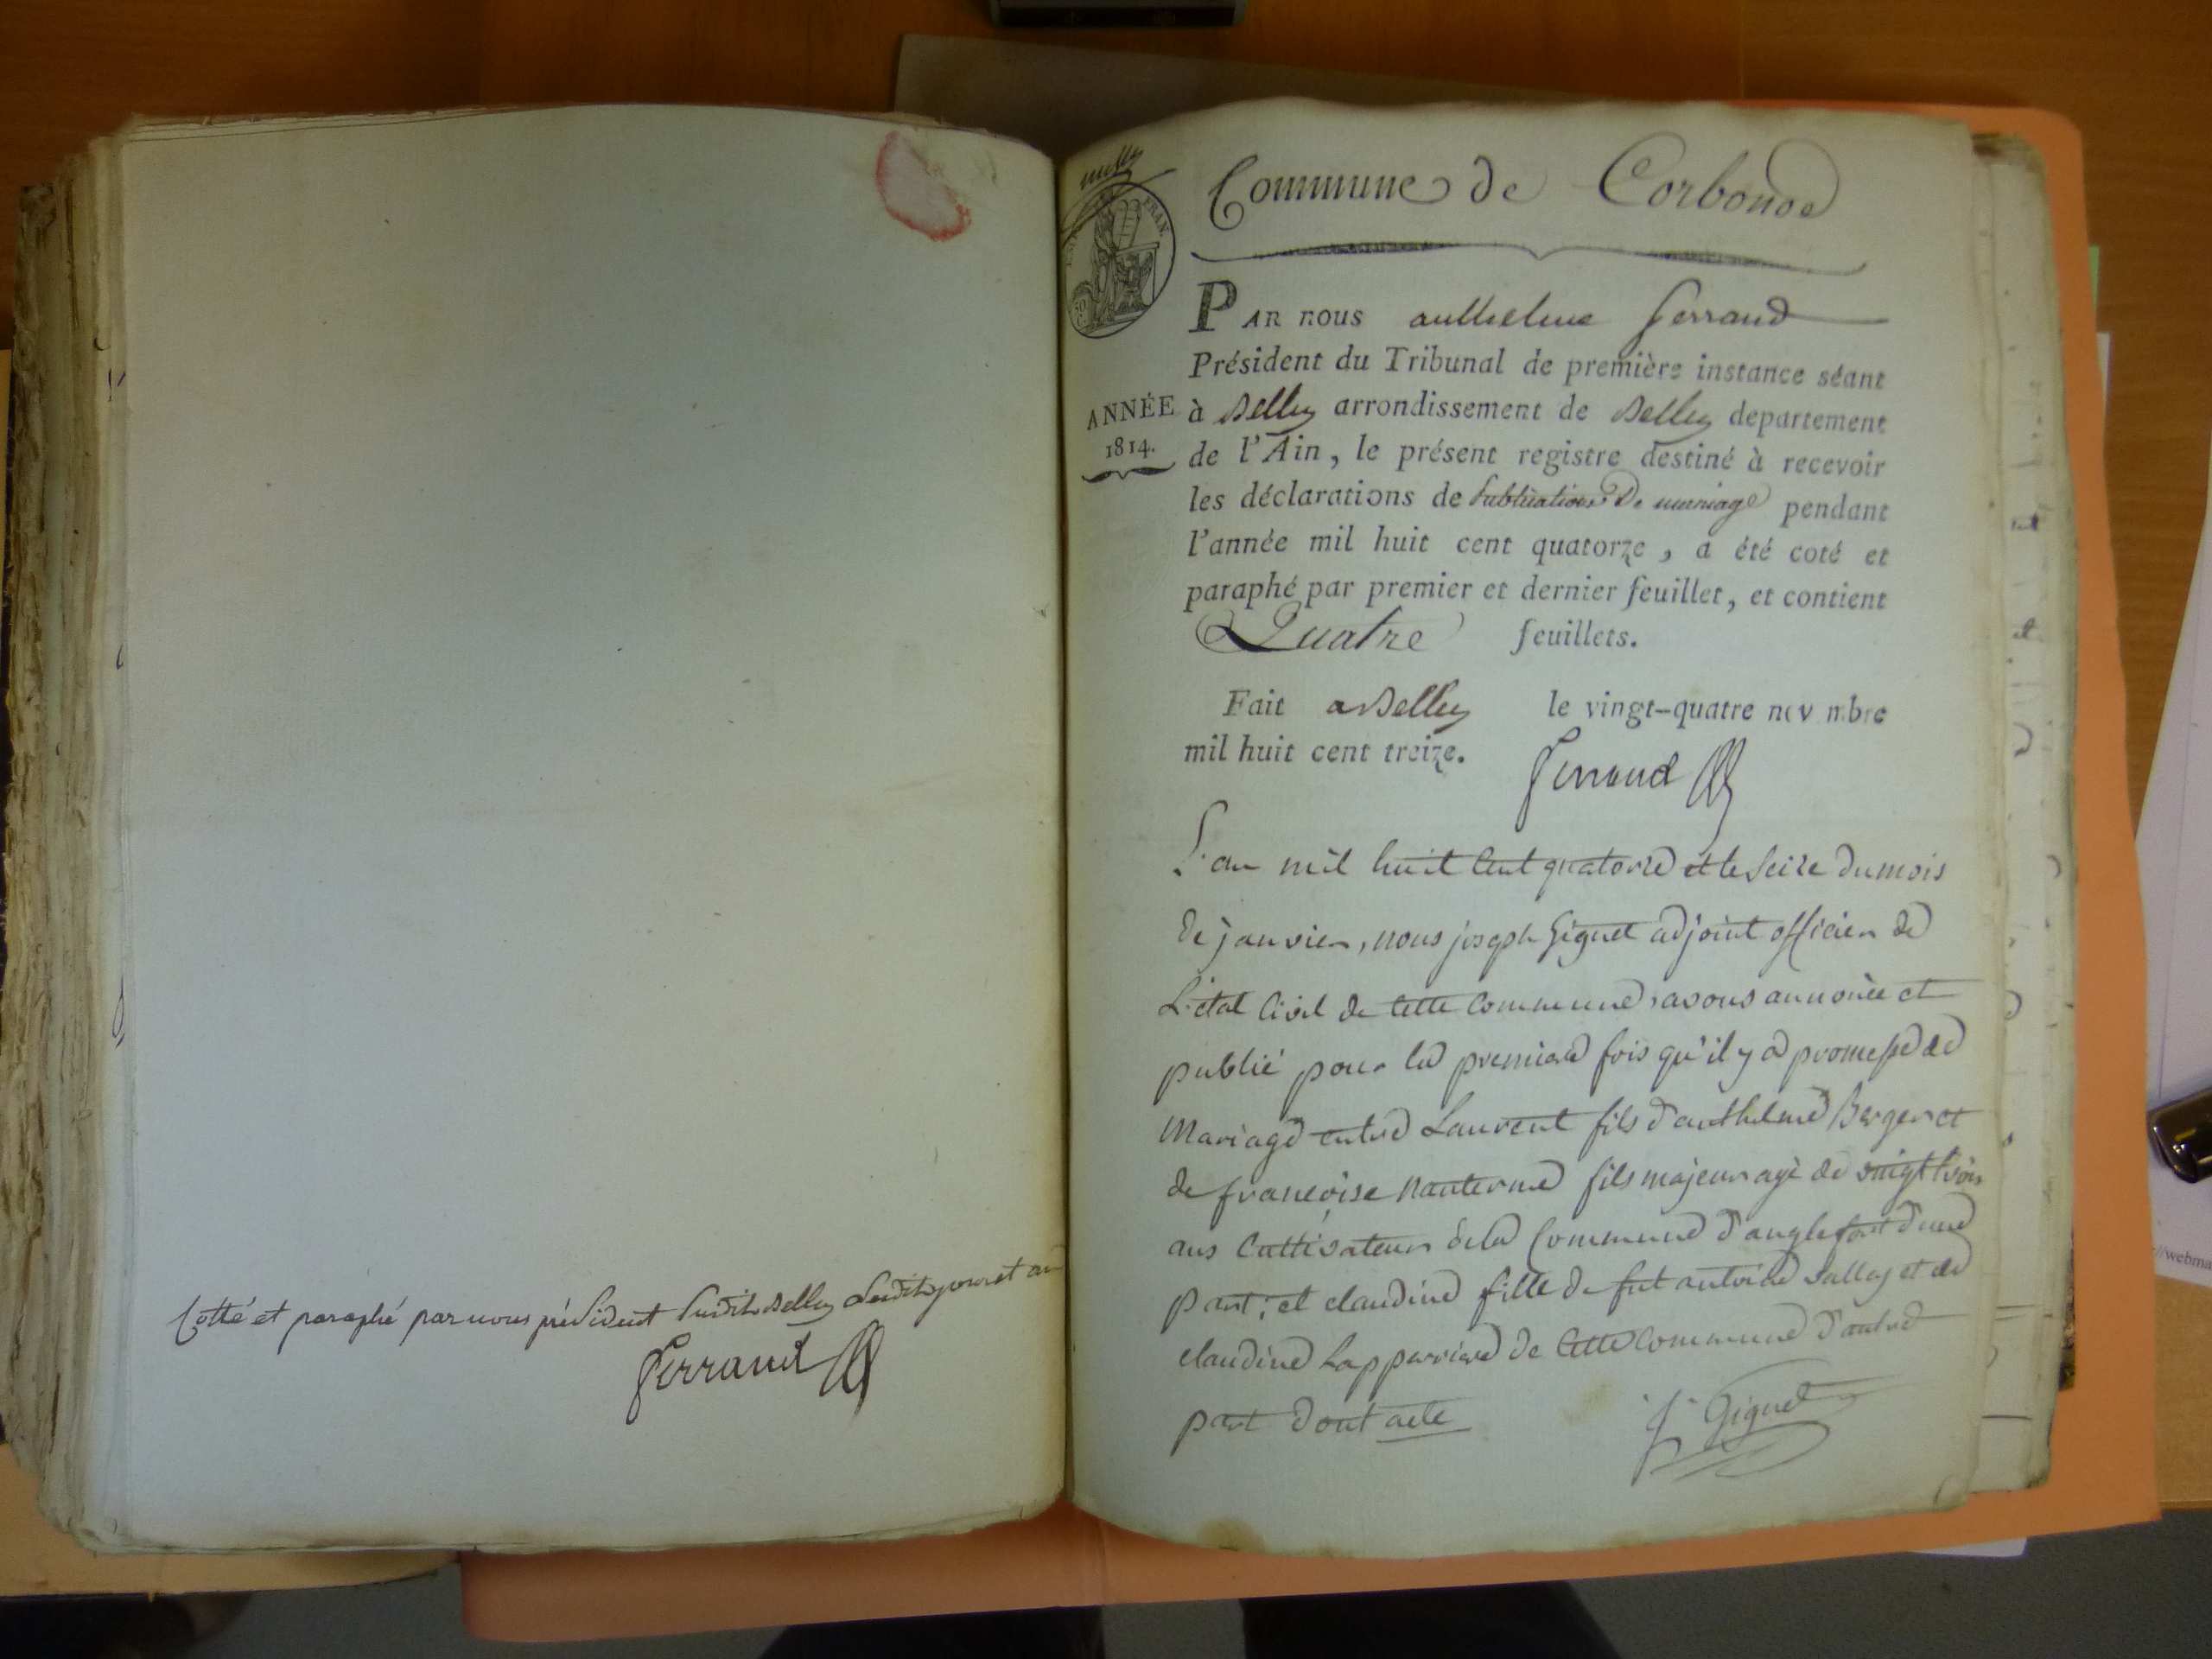 Cotté et paraphé par nous président susdit à Belley lesdits jour et an
Ferrand
Commune de Corbonod
FRAN.
ANNÉE
1814.
PAR nous anthelme ferrand
Président du Tribunal de première instance séant
à Belley arrondissement de Belley departement
de l'Ain, le présent registre destiné à recevoir
les déclarations de Publications De mariage pendant
l'année mil huit cent quatorze, a été coté et
paraphé par premier et dernier feuillet, et contient
Quatre feuillets.
Fait a Belley le vingt-quatre nov mbre
mil huit cent treize.
Ferrand
L'an mil huit Cent quatorze et le Seize du mois
de janvier, nous joseph Giguet adjoint officier de
L'état Civil de Cette Commune, avons annoncé et
publié pour la premiere fois qu'il y a promesse de
Mariage entre Laurent fils d'anthelme Berger et
de francoise nanterme fils majeur agé de vingt trois
ans Cultivateur de la Commune d'anglefort d'une
part; et claudine fille de fut antoine Vallay et de
claudine Lapperriere de Cette Commune d'autre
part dont acte
J. Giguet